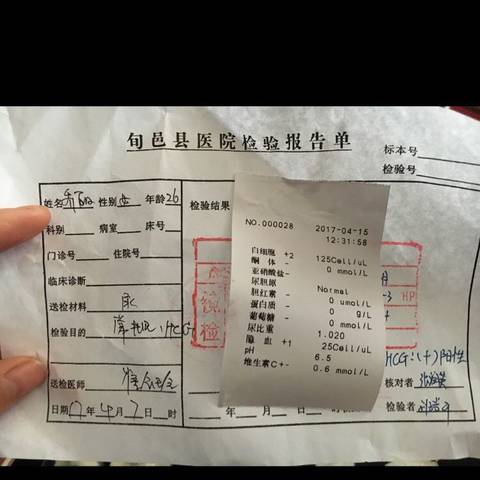 旬邑县医院检验报告单
标本号
检验号
姓名 性别 年龄26
检验结果
科别 病室 床号
门诊号 住院号
临床诊断
送检材料 尿
检验目的 HCG
送检医师
日期17年4月7日 时
NO.000028 2017-04-15
12:31:58
白细胞 +2 125Cell/uL
酮体 - 0 mmol/L
亚硝酸盐-
尿胆原 Normal
胆红素 - 0 umol/L
蛋白质 - 0 g/L
葡萄糖 - 0 mmol/L
尿比重 1.020
隐血 +1 25Cell/uL
pH 6.5
维生素C+- 0.6 mmol/L
HP
检
HCG:(+)阳性
核对者
检验者
年 月 日